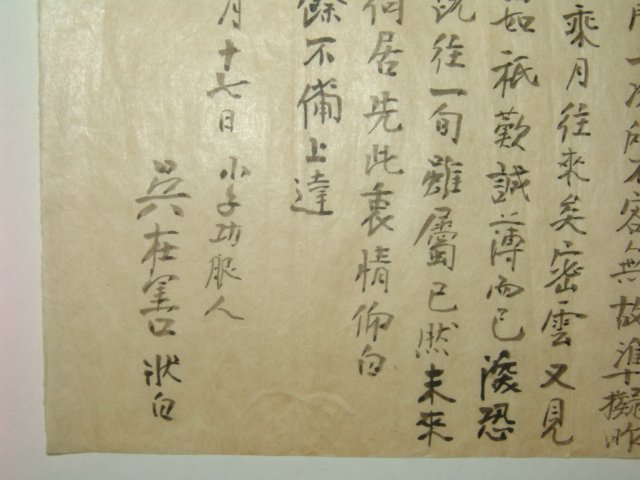 用一次的不容無故準擬昨
乘月往來矣密雲又見
如祇歎誠薄而已浚恐
說往一旬雖屬已然未來
何居先此衷情仰白
餘不備上達
月十七日 小子功服人
吳在善 狀白